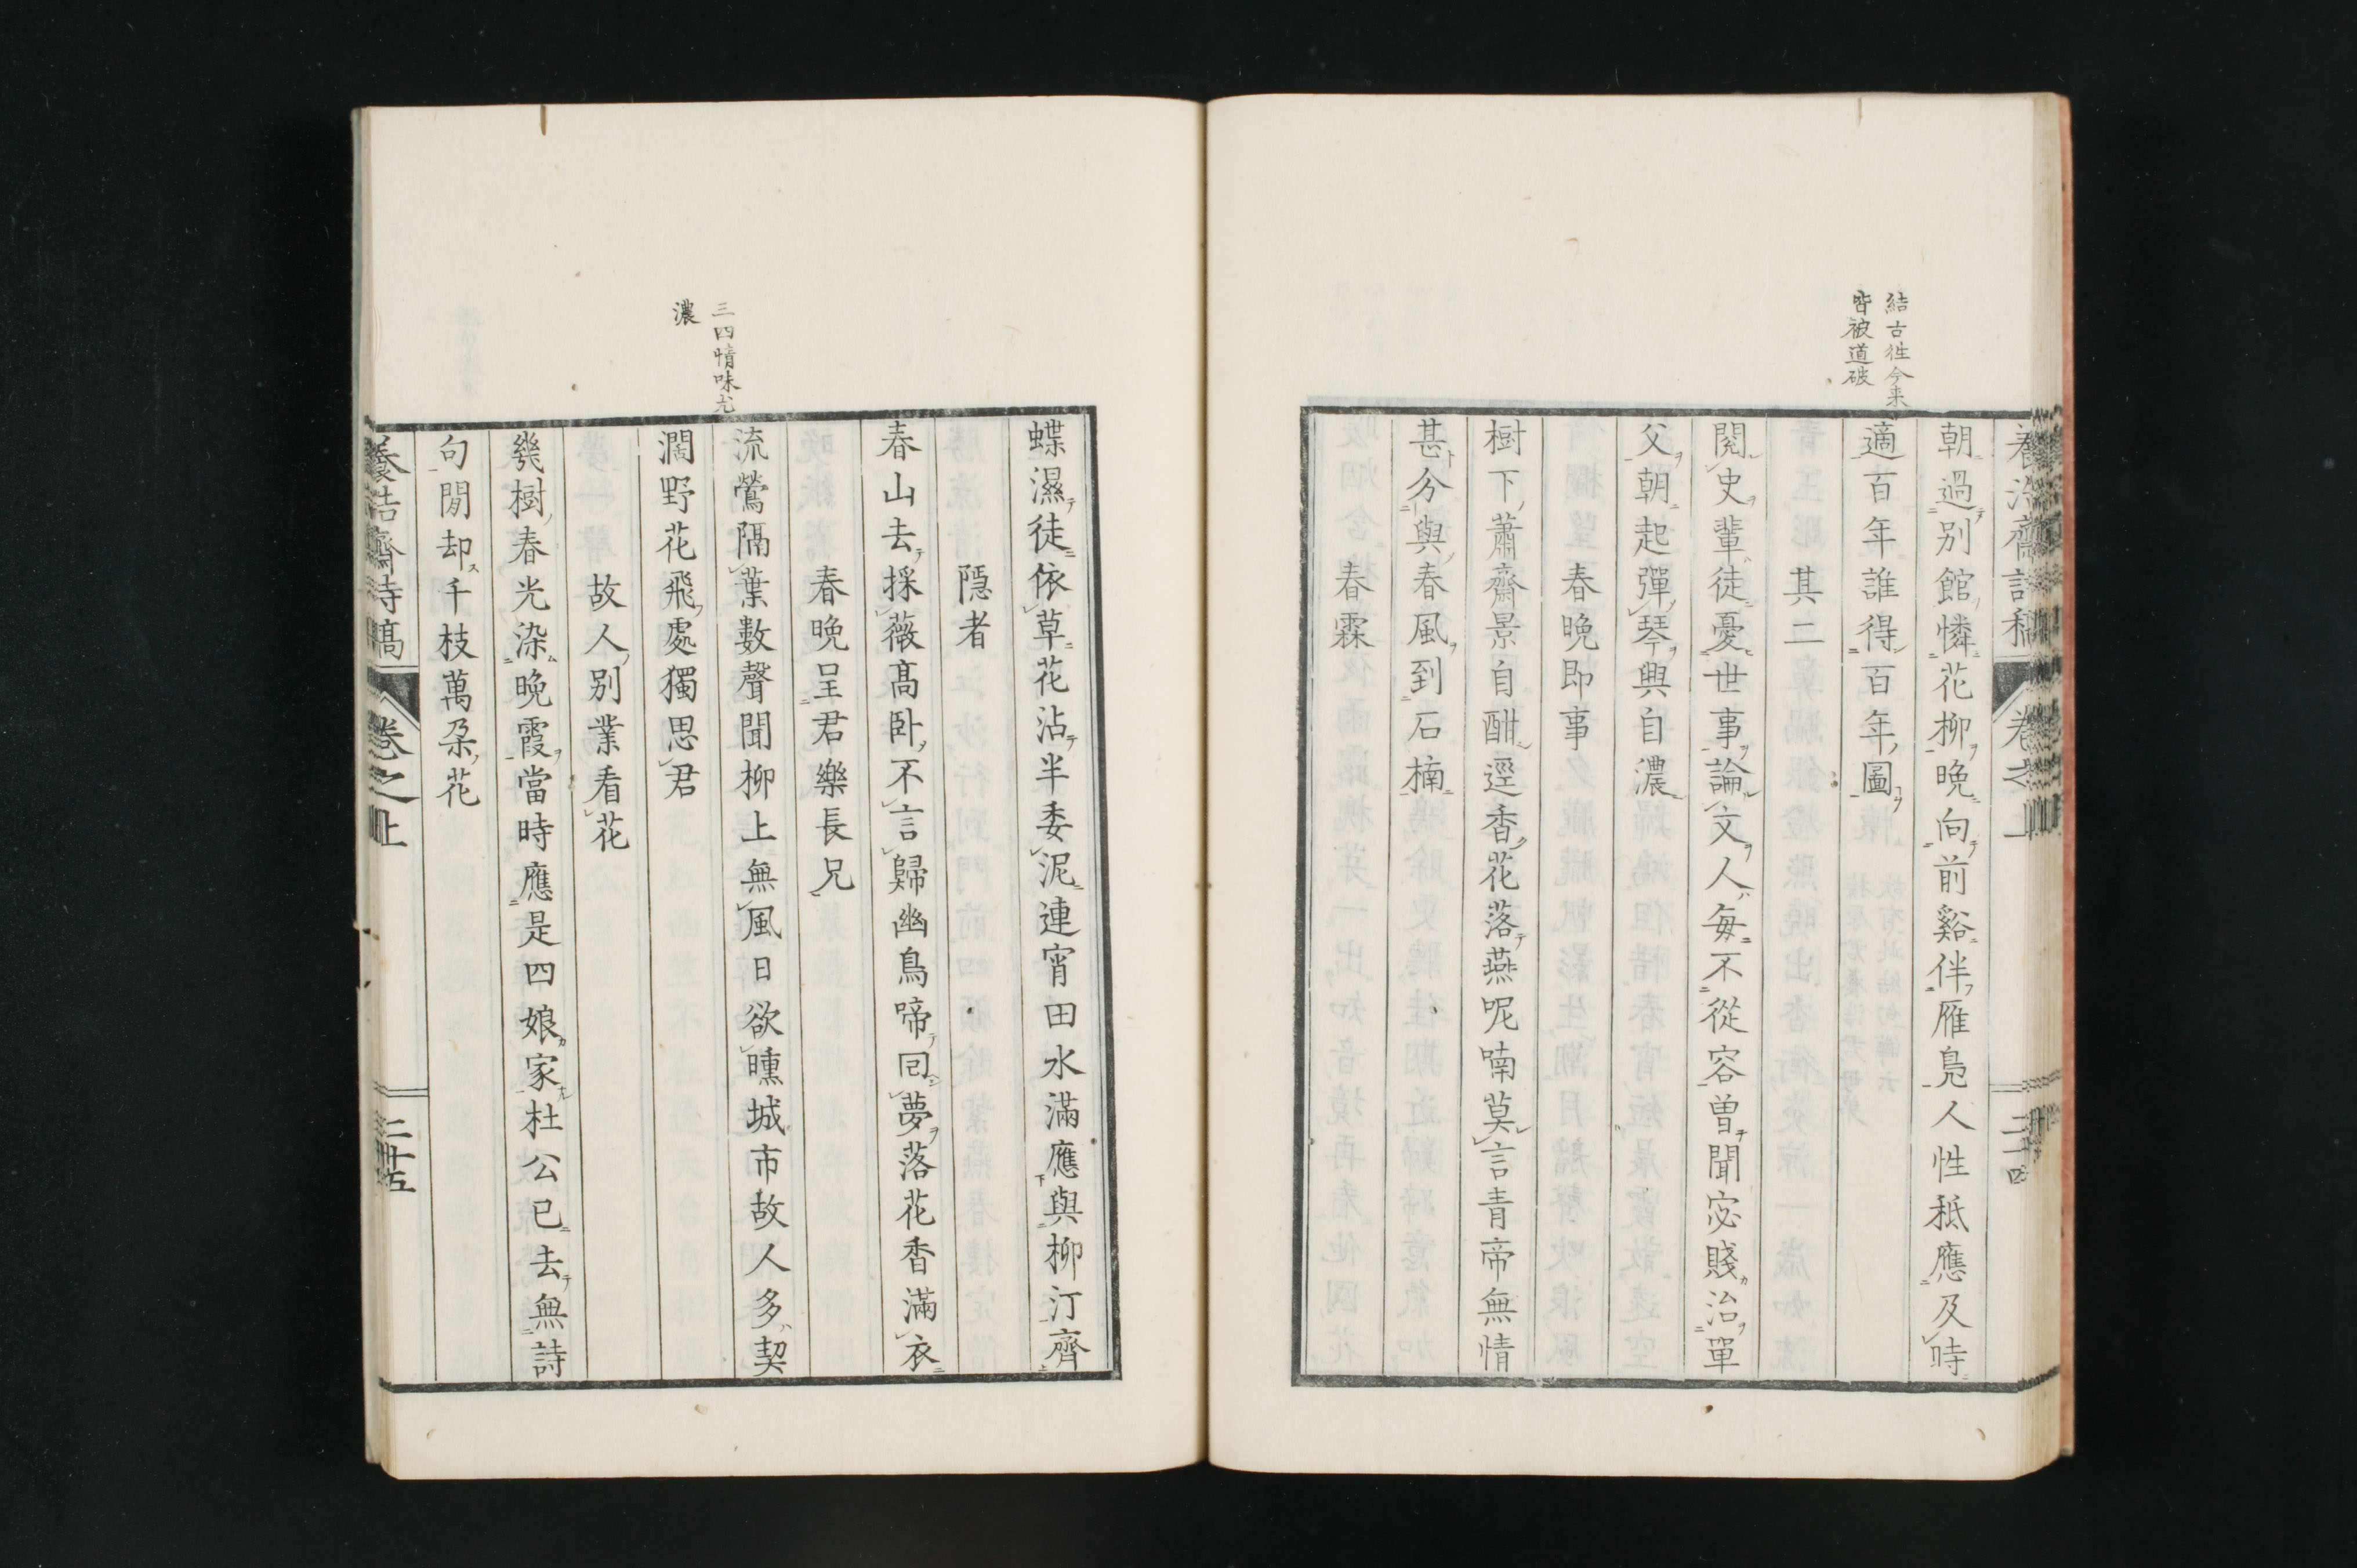 養浩齋詩稿 卷之上 二十四
結古徃今来
皆被道破
朝過別館憐花柳晚向前谿伴雁鳧人性秖應及時
適百年誰得百年圖
其二
閲史輩徒憂世事論文人毎不從容曽聞宓賤治單
父朝起彈琴興自濃
春晚即事
樹下蕭齋景自酣逕香花落燕呢喃莫言青帝無情
甚分與春風到石楠
春霖
蝶濕徒依草花沾半委泥連宵田水滿應與柳汀齊
隱者
春山去採薇高卧不言歸幽鳥啼回夢落花香滿衣
三四情味尤
濃
春晚呈君樂長兄
流鶯隔葉數聲聞柳上無風日欲曛城市故人多契
濶野花飛處獨思君
故人別業看花
幾樹春光染晚霞當時應是四娘家杜公已去無詩
句閒却千枝萬朶花
養浩齋詩稿 卷之上 二十五